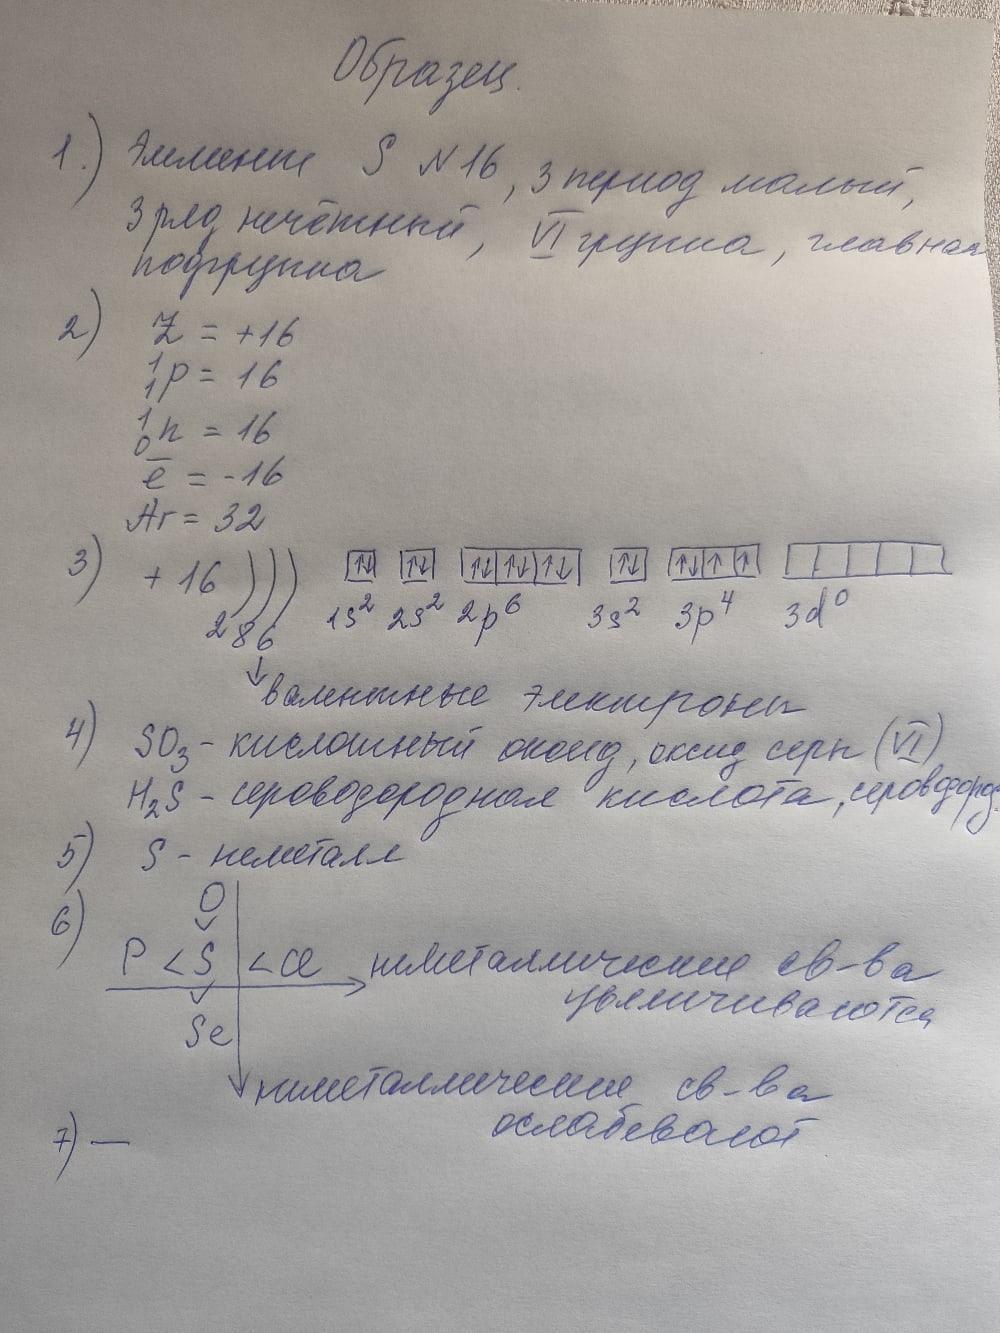 Образец.
1.) Элемент S N16, 3 период малый,
3 ряд нечётный, VI группа, главная
подгруппа
2) Z = +16
¹₁p = 16
¹₀n = 16
e̅ = -16
Ar = 32
3) +16 ))) ↑↓ ↑↓ ↑↓ ↑↓ ↑↓ ↑↓ ↑↓ ↑ ↑
2 8 6 1s² 2s² 2p⁶ 3s² 3p⁴ 3d⁰
↓ валентные электроны
4) SO₃ - кислотный оксид, оксид серы (VI)
H₂S - сероводородная кислота, сероводород.
5) S - неметалл
6) O
P < S < Cl неметаллические св-ва
увеличиваются
Se
неметаллические св-ва
ослабевают
7) —